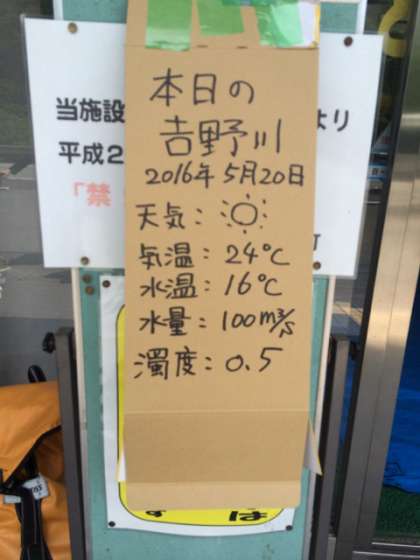 本日の
𠮷野川
2016年5月20日
天気：☼
気温：24℃
水温：16℃
水量：100m³/s
濁度：0.5
当施設
より
平成2
「禁
町
は